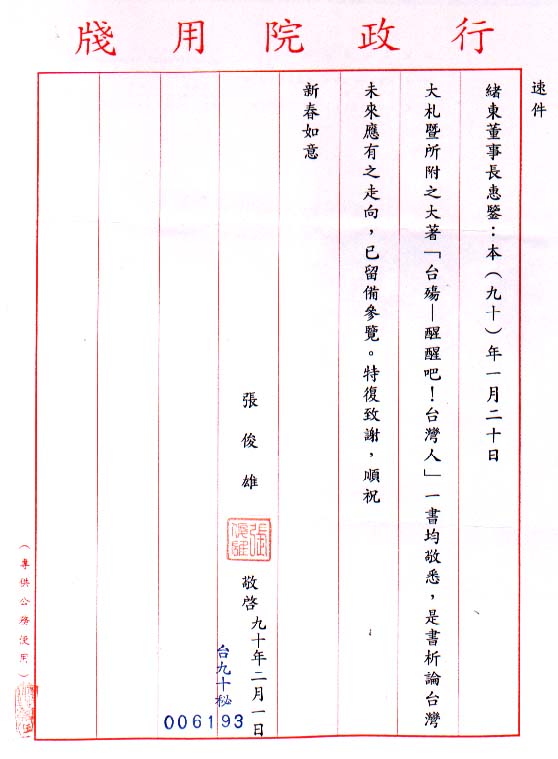 行政院用牋
速件
緒東董事長惠鑒：本（九十）年一月二十日
大札暨所附之大著「台殤—醒醒吧！台灣人」一書均敬悉，是書析論台灣
未來應有之走向，已留備參覽。特復致謝，順祝
新春如意
張俊雄
張俊雄
敬啓
九十年二月一日
台九十秘
006193
（專供公務使用）